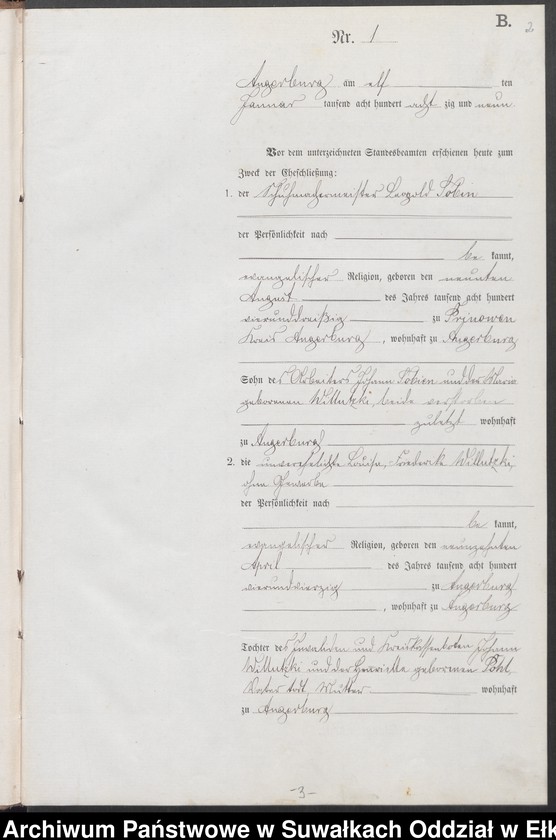 B.
2
Nr. 1
Angerburg am elf ten
Januar tausend acht hundert acht zig und neun
Vor dem unterzeichneten Standesbeamten erschienen heute zum
Zweck der Eheschließung:
1. der Schuhmachermeister Leopold Tobin
der Persönlichkeit nach
be kannt,
evangelischer Religion, geboren den neunten
August des Jahres tausend acht hundert
vierunddreißig zu Prinowen
Kreis Angerburg, wohnhaft zu Angerburg
Sohn des Arbeiters Johann Tobien und der Marie
geborenen Willutzki, beide verstorben
zuletzt wohnhaft
zu Angerburg
2. die unverehelichte Louise, Frederike Willutzki,
ohne Gewerbe
der Persönlichkeit nach
be kannt,
evangelischer Religion, geboren den neunzehnten
April des Jahres tausend acht hundert
vierundvierzig zu Angerburg
, wohnhaft zu Angerburg
Tochter des Invaliden und Kreiskassenboten Johann
Willutzki und der Henriette geborenen Pohl,
Vater todt, Mutter wohnhaft
zu Angerburg
-3-
Archiwum Państwowe w Suwałkach Oddział w Ełk